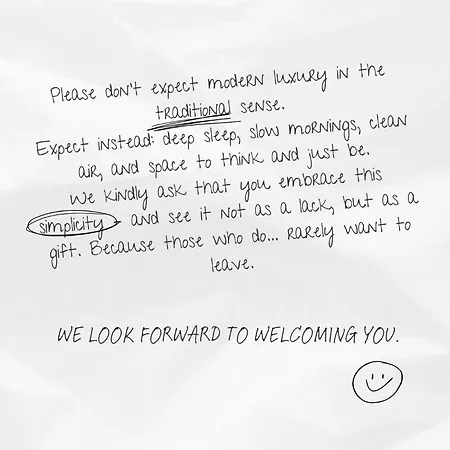 Please don't expect modern luxury in the
traditional sense.
Expect instead: deep sleep, slow mornings, clean
air, and space to think and just be.
We kindly ask that you embrace this
simplicity - and see it not as a lack, but as a
gift. Because those who do... rarely want to
leave.
WE LOOK FORWARD TO WELCOMING YOU.